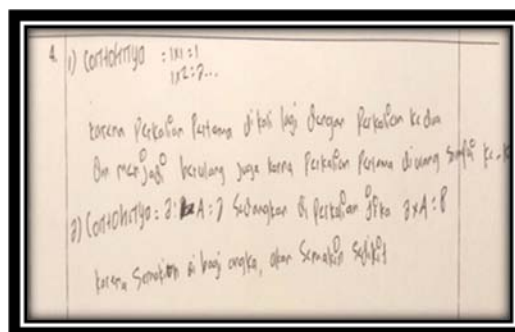 4. 1) Contohnya : 1x1 = 1
1x2 = 2...
karena Perkalian Pertama dikali lagi dengan Perkalian kedua
Dan menjadi berulang juga karna Perkalian Pertama diulang sampai ke-
2) Contohnya = 2 : A = 2 Sedangkan di Perkalian jika 2 x A = 8
karena Semakin di bagi angka, akan Semakin Sedikit